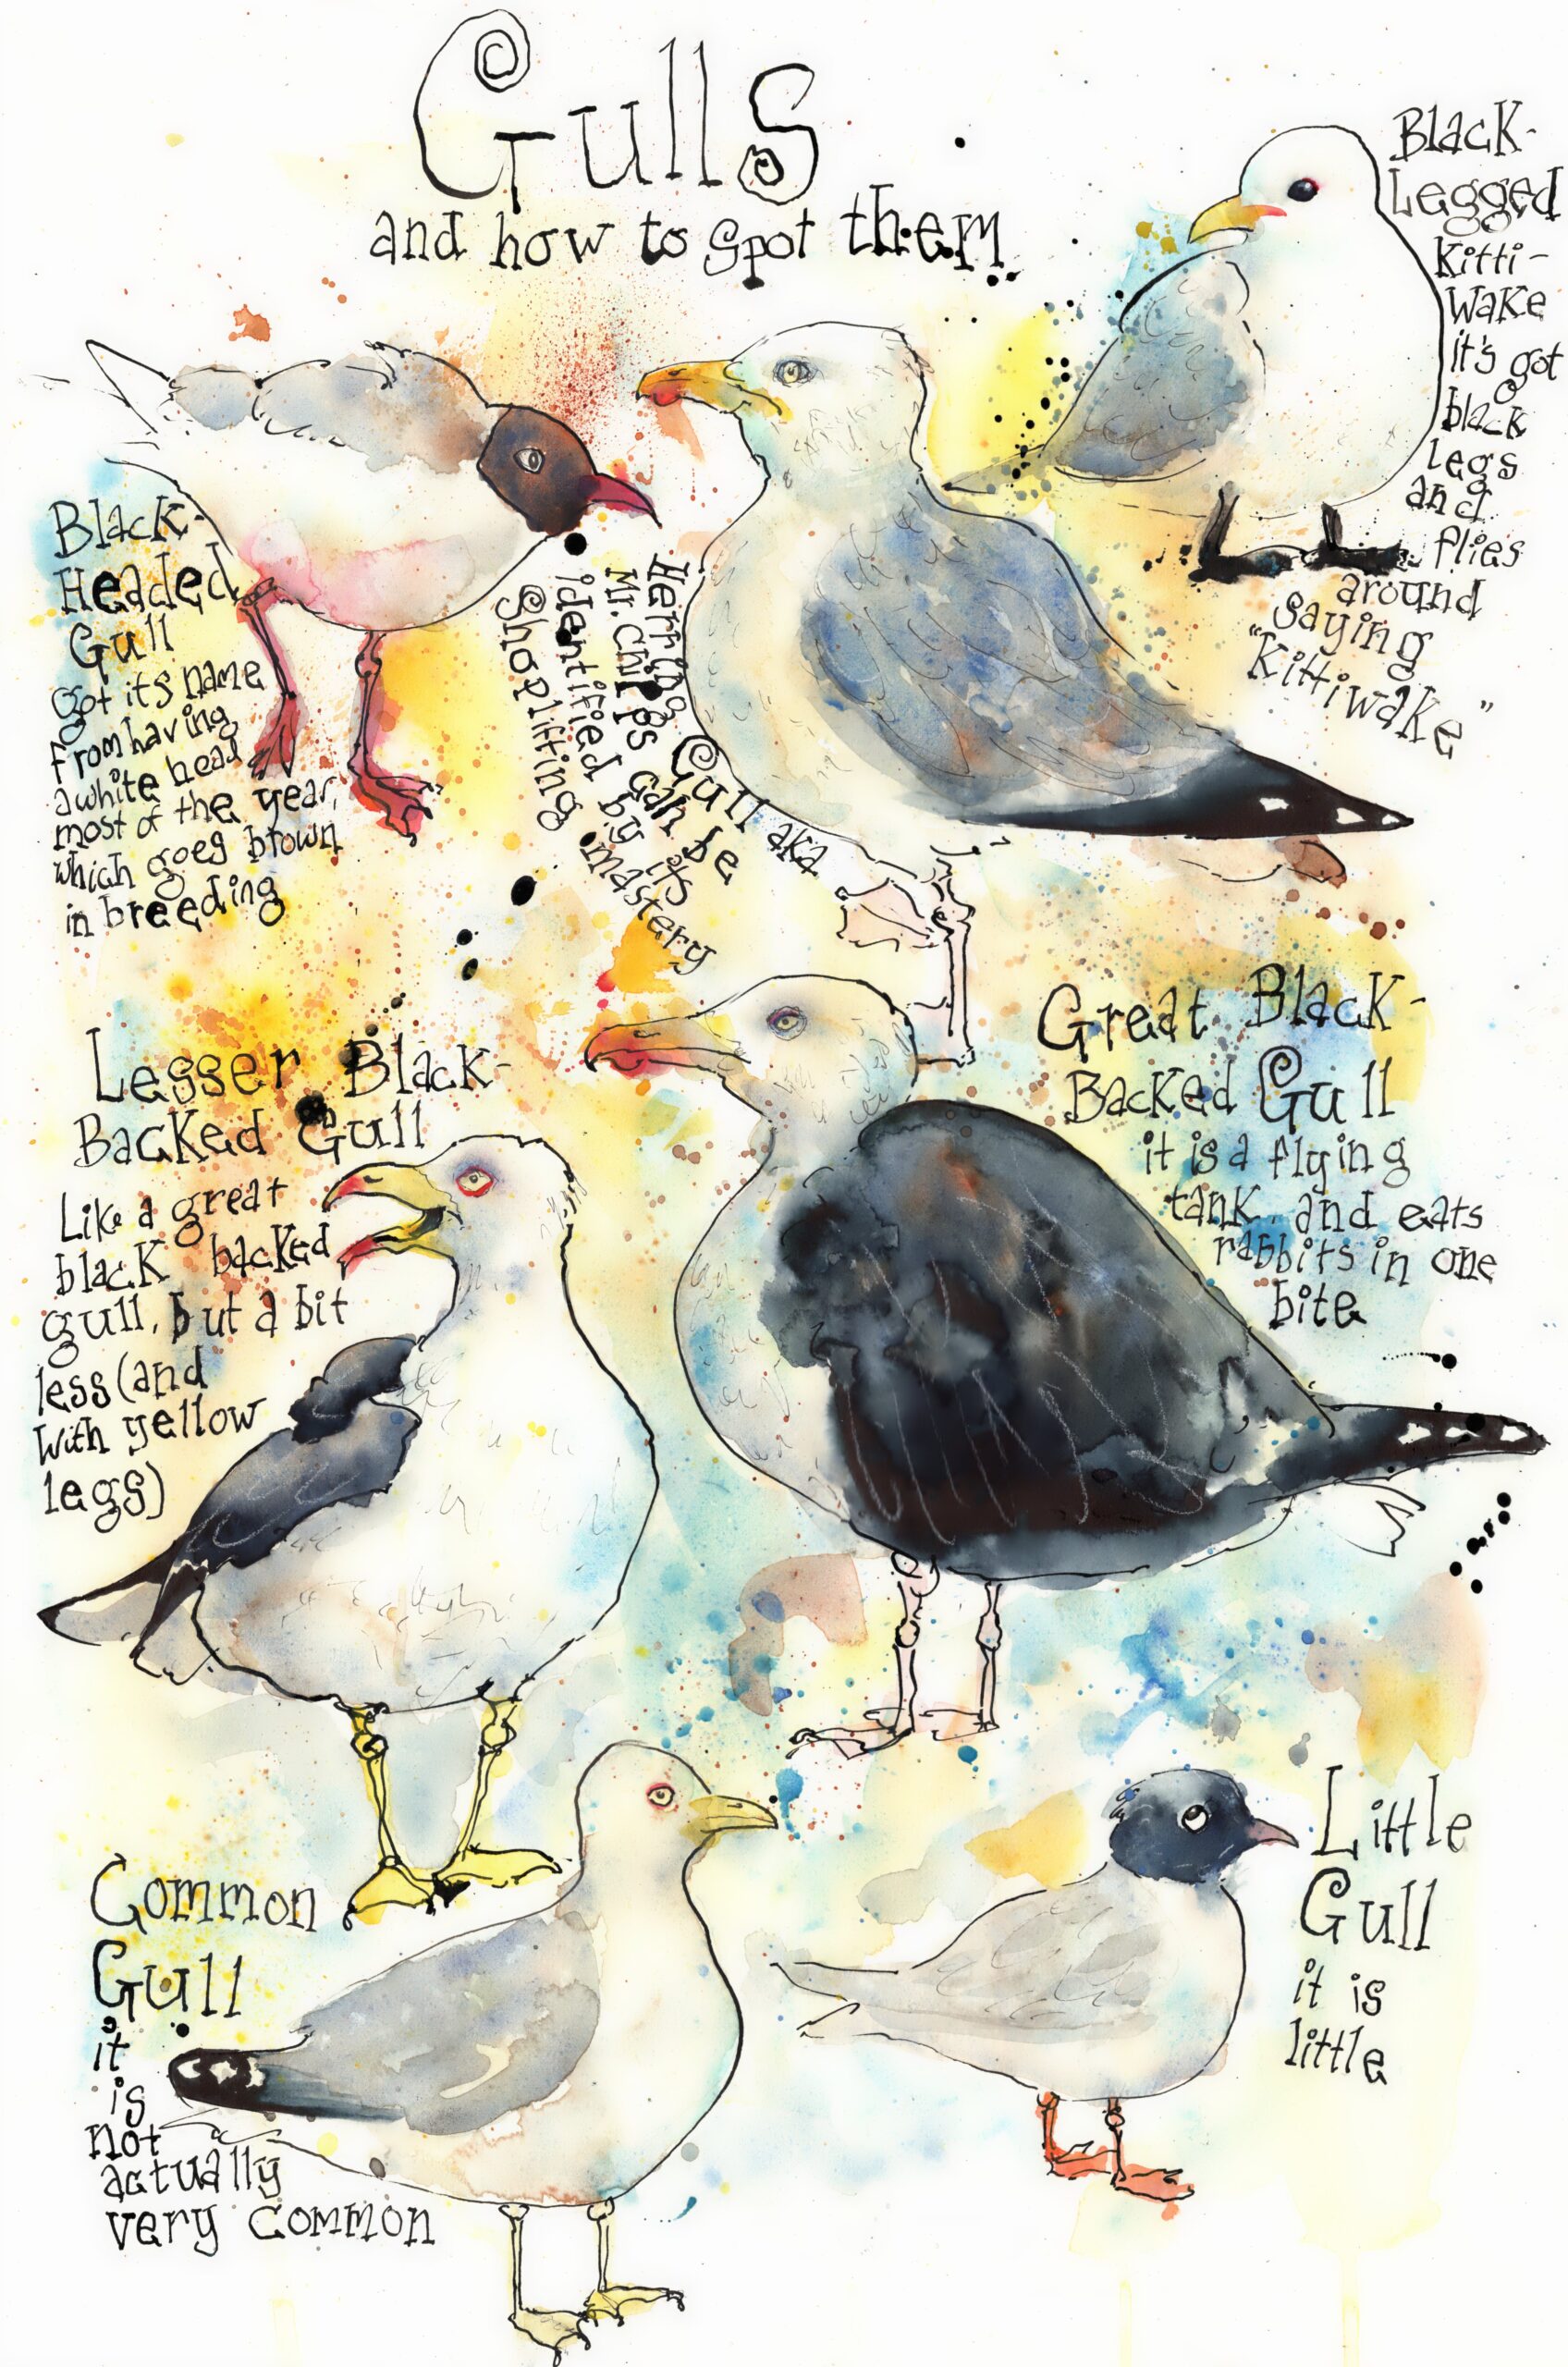 Gulls
and how to spot them
Black-
Legged
Kitti-
Wake
it's got
black
legs
and
flies
around
saying
"Kittiwake"
Black-
Headed
Gull
got its name
from having
a white head
most of the year,
which goes brown
in breeding
Herring Gull aka
Mr. Chips can be
identified by its
Shoplifting mastery
Great Black-
Backed Gull
it is a flying
tank and eats
rabbits in one
bite
Lesser Black-
Backed Gull
Like a great
black backed
gull, but a bit
less (and
with yellow
legs)
Common
Gull
it
is
not
actually
very common
Little
Gull
it is
little